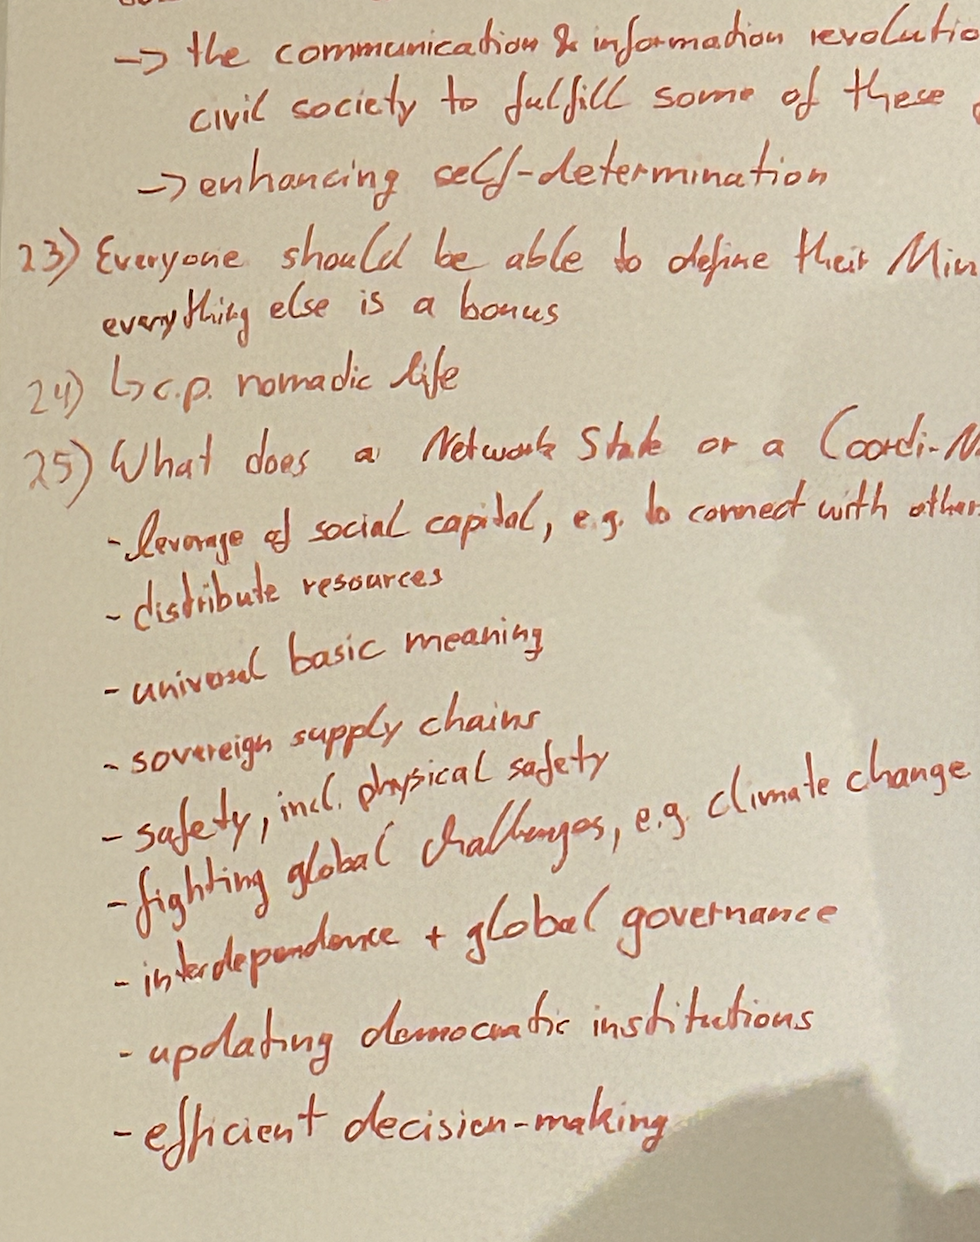 → the communication & information revolutio
civil society to fulfill some of these
→ enhancing self-determination
23) Everyone should be able to define their Min
everything else is a bonus
24) ↳ c.p. nomadic life
25) What does a Network State or a Coordi-N
- leverage of social capital, e.g. to connect with other
- distribute resources
- universal basic meaning
- sovereign supply chains
- safety, incl. physical safety
- fighting global challenges, e.g. climate change
- interdependence + global governance
- updating democratic institutions
- efficient decision-making